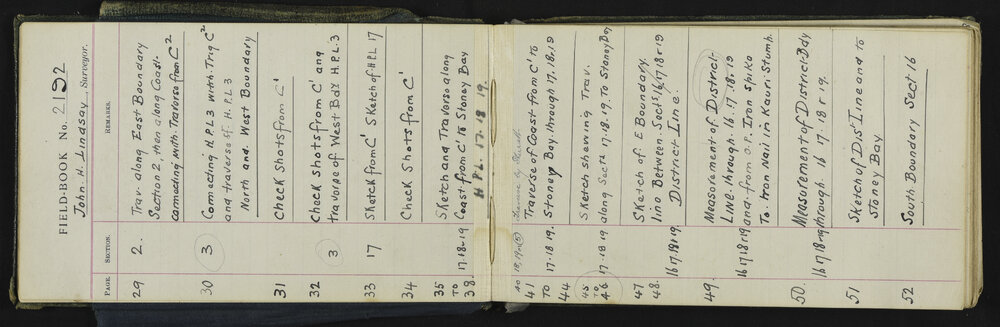 FIELD-BOOK No. 2192
John. H. Lindsay, Surveyor.
PAGE. SECTION. REMARKS.
29 2. Trav. along East Boundary
Section 2, then along Coast.
connecting with Traverse from C²
30 3 Connecting H.P.L 3 with Trig C²
and traverse of H.P.L 3
North and West Boundary
31 Check Shots from C'
32 3 Check Shots from C' and
traverse of West Bdy H.P.L.3
33 17 Sketch from C' Sketch of H.P.L 17
34 Check Shots from C'
35 Sketch and Traverse along
TO Coast from C' to Stoney Bay
38. 17-18-19 H P L. 17. 18. 19.
40 18, 19
41 Traverse of Coast from C' to
TO 17-18 19. Stoney Bay. through 17. 18. 19
44
45 Sketch shewing Trav.
TO
46 17-18 19 along Sects 17. 18. 19. To Stoney Bay
47 Sketch of E Boundary.
48. line Between. Sects 16, 17. 18 r 19
16 17. 18 r 19. District Line.
49. Measurement of District
Line. through. 16 17. 18. r 19
16 17 18 r 19 and from O.P. Iron Spike
To. Iron Nail in Kauri Stump.
50. Measurement of District Bdy
16 17 18 r 19 through. 16 17. 18 r 19.
51 Sketch of Dist Line and to
Stoney Bay
52 South Boundary Sect 16